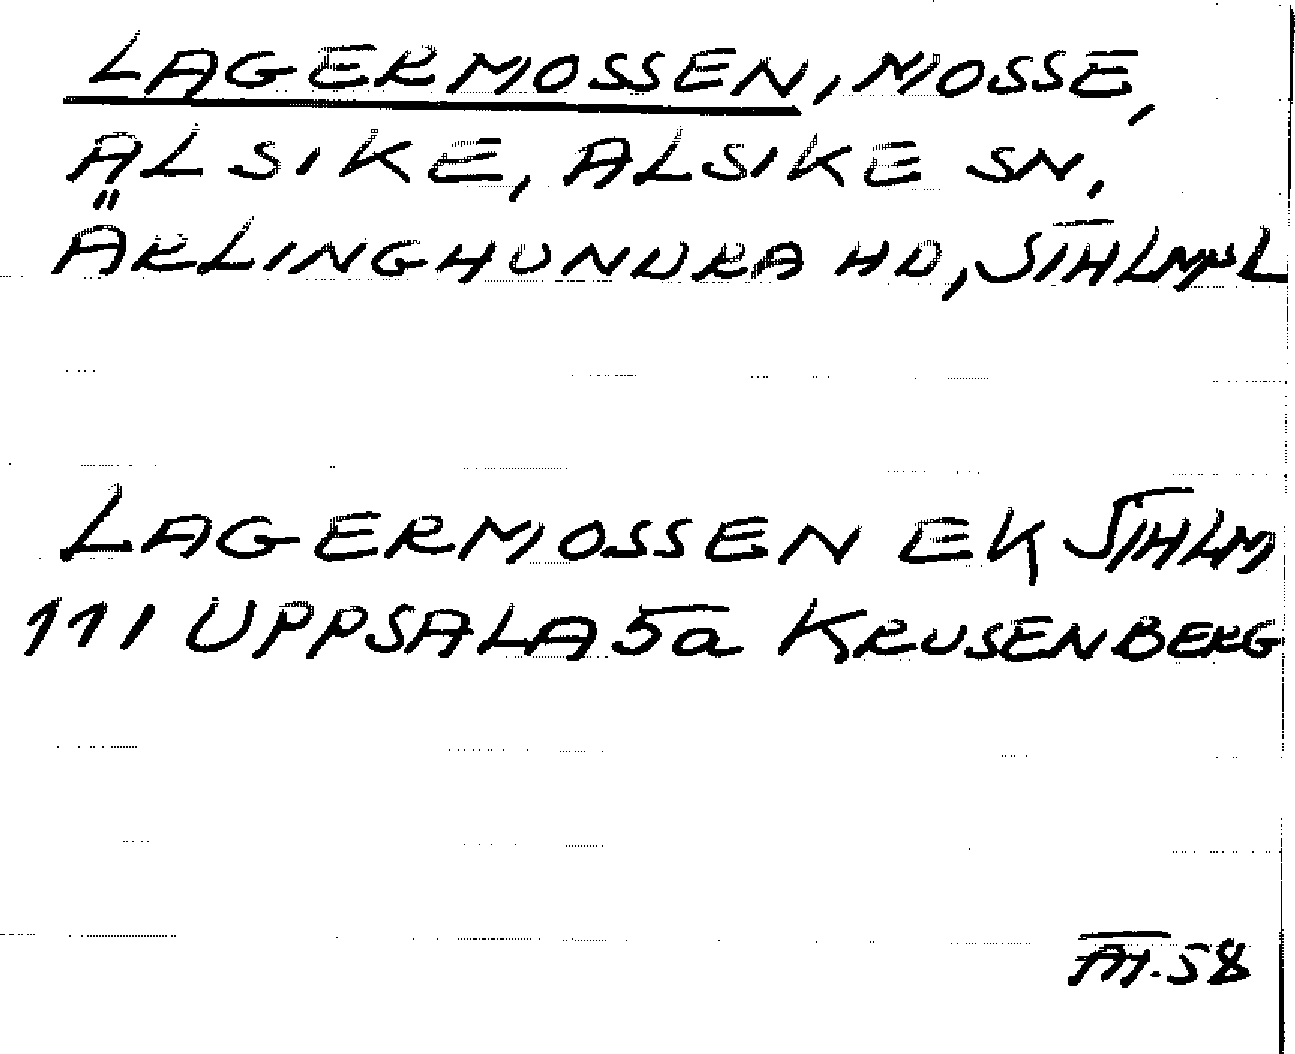 LAGERMOSSEN, MOSSE,
ALSIKE, ALSIKE SN,
ÄRLINGHUNDRA HD, STHLMSL
LAGERMOSSEN EK STHLM
111 UPPSALA 5a KRUSENBERG
58